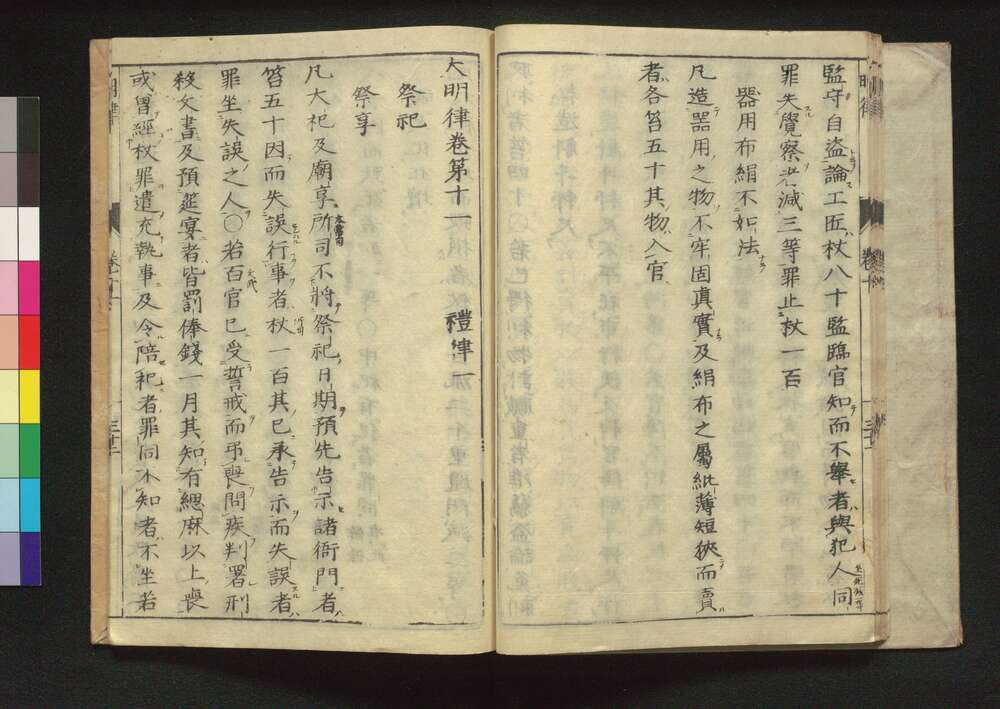 監守自盗論工匠杖八十監臨官知而不舉者與犯人同
罪失覺察者減三等罪止杖一百
器用布絹不如法
凡造器用之物不牢固真實及絹布之屬紕薄短狹而賣
者各笞五十其物入官
大明律卷第十一 禮律一
祭祀
祭享
凡大祀及廟享所司不將祭祀日期預先告示諸衙門者
笞五十因而失誤行事者杖一百其已承告示而失誤者
罪坐失誤之人〇若百官已受誓戒而弔喪問疾判署刑
殺文書及預筵宴者皆罰俸錢一月其知有緦麻以上喪
或曾經杖罪遣充執事及令陪祀者罪同不知者不坐若